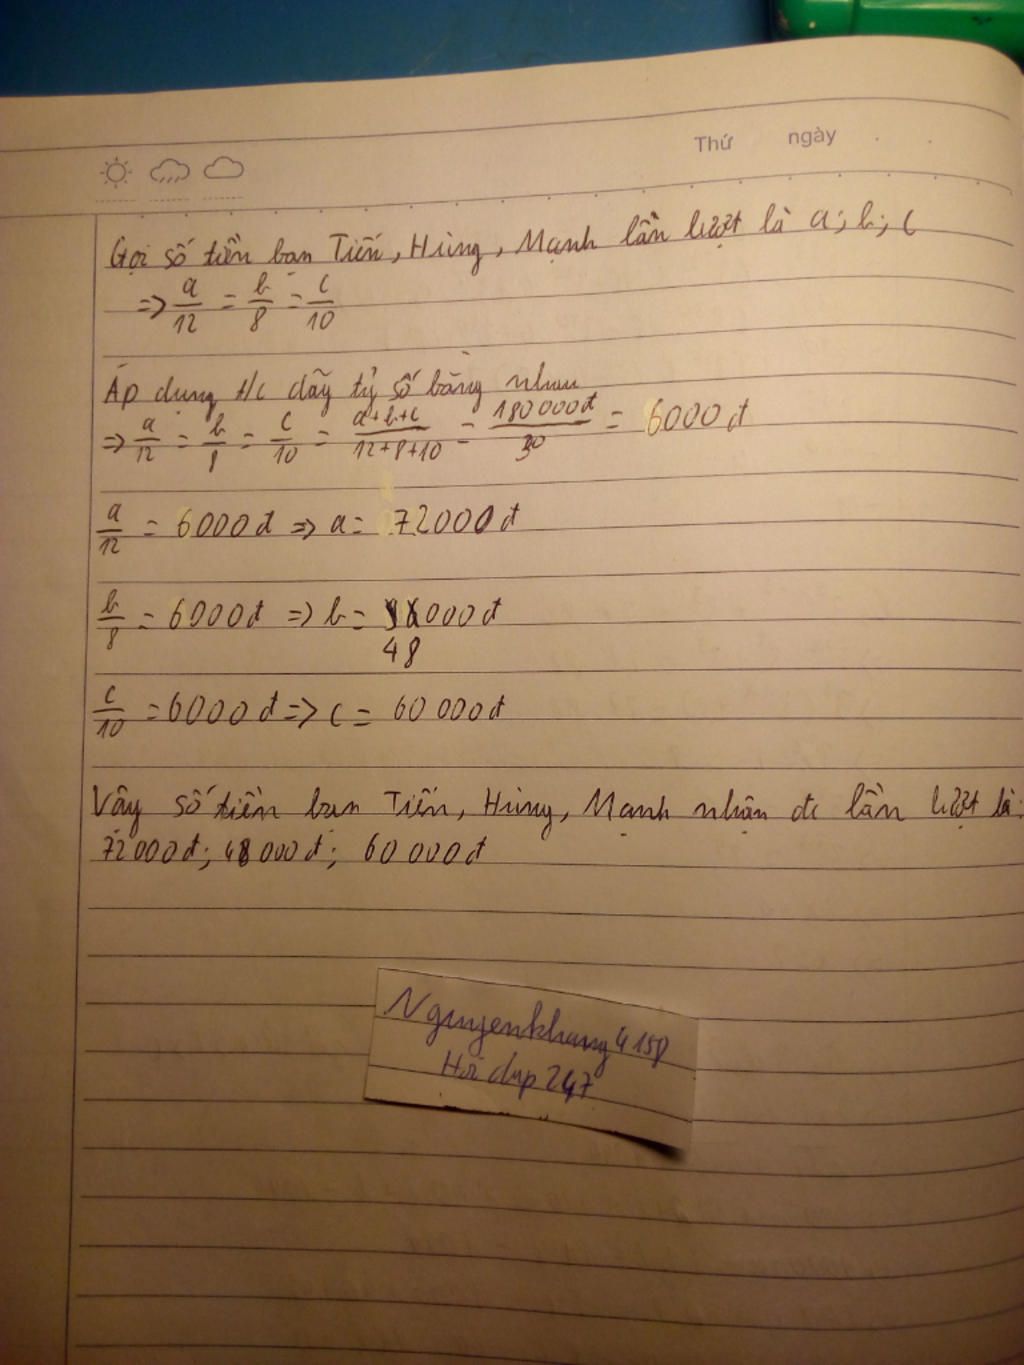 Thứ ngày
Gọi số tiền bạn Tiến, Hùng, Mạnh lần lượt là a; b; c
=> a/12 = b/8 = c/10
Áp dụng t/c dãy tỷ số bằng nhau
=> a/12 = b/8 = c/10 = a+b+c/12+8+10 = 180000đ/30 = 6000đ
a/12 = 6000đ => a = 72000đ
b/8 = 6000đ => b = 000đ
48
c/10 = 6000đ => c = 60 000đ
Vậy số tiền bạn Tiến, Hùng, Mạnh nhận đc lần lượt là:
72000đ; 48000đ; 60 000đ
Nguyenkhang4158
Hoi dap 247